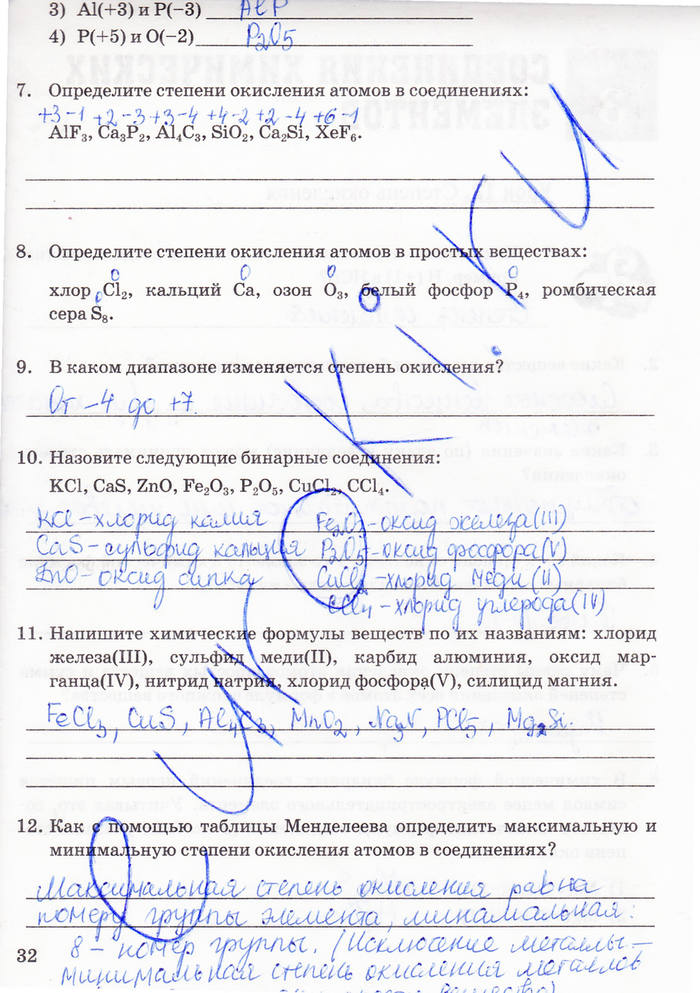 3) Al(+3) и P(−3) AlP
4) P(+5) и O(−2) P₂O₅
7. Определите степени окисления атомов в соединениях:
+3 −1 +2 −3 +3 −4 +4 −2 +2 −4 +6 −1
AlF₃, Ca₃P₂, Al₄C₃, SiO₂, Ca₂Si, XeF₆.
8. Определите степени окисления атомов в простых веществах:
0 0 0 0
хлор Cl₂, кальций Ca, озон O₃, белый фосфор P₄, ромбическая
0
сера S₈.
9. В каком диапазоне изменяется степень окисления?
От −4 до +7
10. Назовите следующие бинарные соединения:
KCl, CaS, ZnO, Fe₂O₃, P₂O₅, CuCl₂, CCl₄.
KCl – хлорид калия Fe₂O₃ – оксид железа(III)
CaS – сульфид кальция P₂O₅ – оксид фосфора(V)
ZnO – оксид цинка CuCl₂ – хлорид меди(II)
CCl₄ – хлорид углерода(IV)
11. Напишите химические формулы веществ по их названиям: хлорид
железа(III), сульфид меди(II), карбид алюминия, оксид мар-
ганца(IV), нитрид натрия, хлорид фосфора(V), силицид магния.
FeCl₃, CuS, Al₄C₃, MnO₂, Na₃N, PCl₅, Mg₂Si.
12. Как с помощью таблицы Менделеева определить максимальную и
минимальную степени окисления атомов в соединениях?
Максимальная степень окисления равна
номеру группы элемента, минамальная:
32 8 – номер группы. (Исключение металлы –
минимальная степень окисления металлов